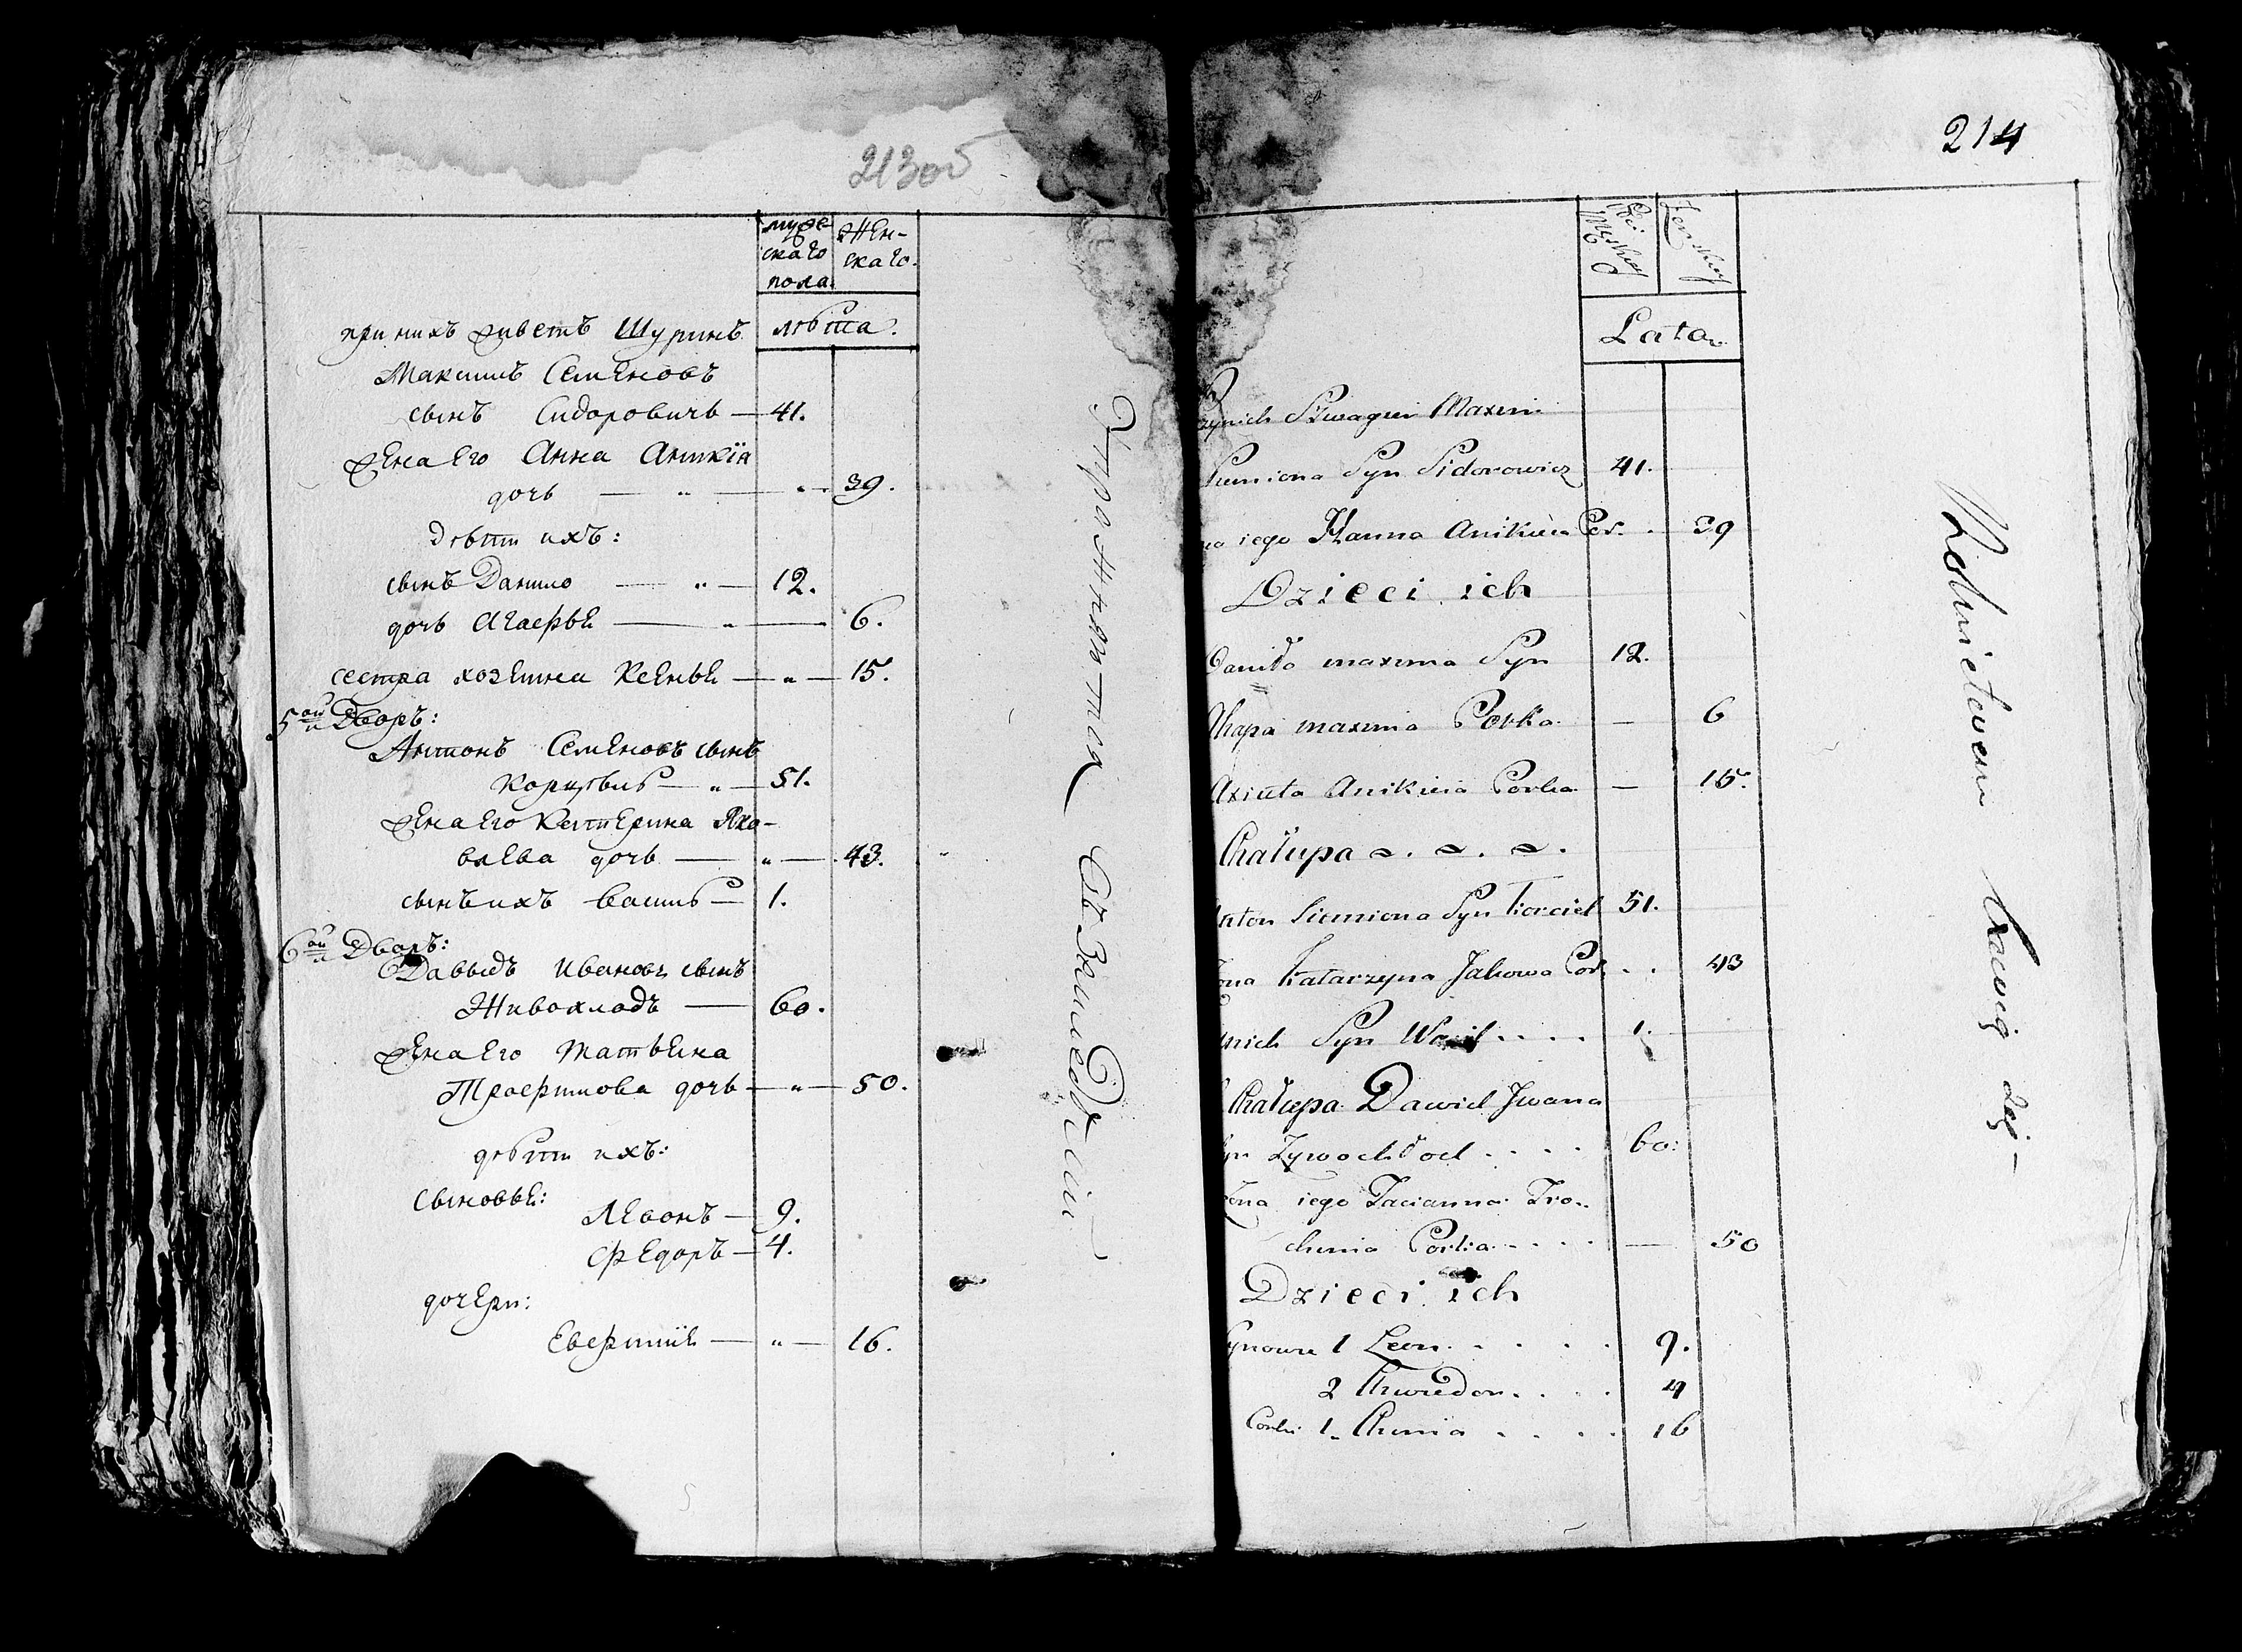 213об
мужескаго пола.
женскаго.
лѣта.
при нихъ живетъ Шуринъ
Максимъ Семеновъ
сынъ Сидоровичь — 41.
жена его Анна Аникія
дочь — " — " — 39.
дѣти ихъ:
сынъ Данило — " — 12.
дочь Агафья — " — 6.
сестра хозяина Ксенья — " — 15.
5ой Дворъ:
Антонъ Семеновъ сынъ
— " — 51.
жена его Катерина Яко-
влева дочь — " — 43.
сынъ ихъ Василь — 1.
6ой Дворъ:
Давыдъ Ивановъ сынъ
Живохладъ — 60.
жена его Татьяна
Трофимова дочь — " — 50.
дѣти ихъ:
сыновья:
Леонъ — 9.
Федоръ — 4.
дочери:
Евфимія — " — 16.
214
Męskiey
Zenskiey
Lata
Szwagier Maxim
Siemiona Syn Sidorowicz 41.
iego Hanna Anikieia Cor. . 39
Dzieci ich
Daniło maxima Syn 12.
Ahapa maxima Corka — 6
Axiuta Anikieia Corka — 15.
Chałupa
Anton Siemiona Syn 51.
Zona Katarzyna Jakowa Cor. . . 43
nich Syn Wasil . . . . 1.
Chałupa Dawid Jwana
Syn Zywochłod . . . . 60:
Zona iego Tacianna Tro-
chimia Corka . . . . — 50
Dzieci ich
Synowie 1 Leon . . . . . 9.
2 Chwiedor . . . . 4
Corki 1. Chimia . . . . 16